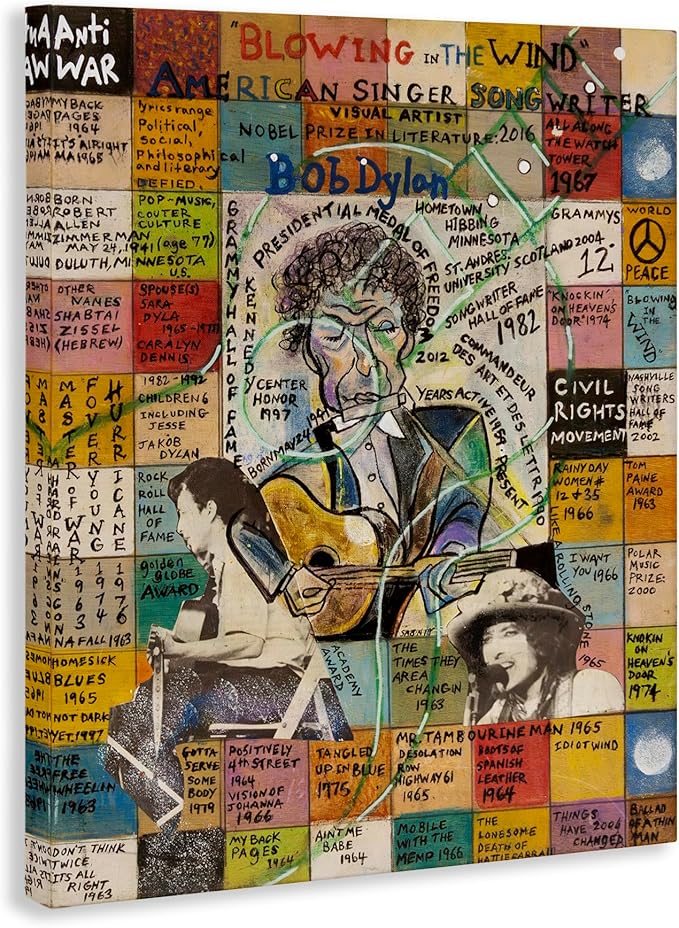 Anti
WAR
"BLOWING IN THE WIND"
AMERICAN SINGER SONG WRITER
VISUAL ARTIST
NOBEL PRIZE IN LITERATURE: 2016
Bob Dylan
MY BACK
PAGES
1964
IT'S ALRIGHT
MA 1965
lyrics range
Political,
social,
Philosophical
and literary
DEFIED.
ALL ALONG
THE WATCH
TOWER
1967
BORN
ROBERT
ALLEN
ZIMMERMAN
MAY 24, 1941 (age 77)
DULUTH, MINNESOTA
U.S.
POP-MUSIC,
COUTER
CULTURE
GRAMMY HALL OF FAME
KENNEDY
CENTER
HONOR
1997
PRESIDENTIAL MEDAL OF FREEDOM
2012
HOMETOWN
HIBBING
MINNESOTA
ST. ANDRES:
UNIVERSITY SCOTLAND 2004
SONGWRITER
HALL OF FAME
1982
GRAMMYS
12.
WORLD
PEACE
OTHER
NANES
SHABTAI
ZISSEL
(HEBREW)
SPOUSE(S)
SARA
DYLA
1965-1977
CARALYN
DENNIS.
COMMANDEUR
DES ART ET DES LETTR 1990
YEARS ACTIVE 1959-PRESENT
BORN MAY 24 1941
"KNOCKIN'
ON HEAVEN'S
DOOR." 1974
"BLOWING
IN
THE
WIND"
MASTER OF WAR
FOVER YOUNG
HURRICANE
1982-1992
CHILDREN 6
INCLUDING
JESSE
JAKOB
DYLAN
CIVIL
RIGHTS
MOVEMENT
NASHVILLE
SONG
WRITERS
HALL OF
FAME
2002
ROCK
&
ROLL
HALL
OF
FAME
RAINY DAY
WOMEN #
12 & 35
1966
TOM
PAINE
AWARD
1963
golden
GLOBE
AWARD
LIKE A ROLLING STONE
1965
I WANT
YOU 1966
POLAR
MUSIC
PRIZE:
2000
FALL 1963
HOMESICK
BLUES
1965
NOT DARK
YET. 1997
ACADEMY
AWARD
THE
TIMES THEY
AREA
CHANGIN
1963
KNOKIN
ON
HEAVEN'S
DOOR
1974
THE
FREE
WHEELIN
1963
GOTTA
SERVE
SOME
BODY
1979
POSITIVELY
4th STREET
1964
VISION OF
JOHANNA
1966
TANGLED
UP IN BLUE
1775
MR. TAMBOURINE MAN 1965
DESOLATION
ROW
HIGHWAY 61
1965
BOOTS OF
SPANISH
LEATHER
1964
IDIOT WIND
DON'T THINK
TWICE
ITS ALL
RIGHT
1963
MY BACK
PAGES
1964
AINT ME
BABE
1964
MOBILE
WITH THE
MEMP 1966
THE
LONESOME
DEATH OF
HATTIE CARRALL
THINGS
HAVE 2006
CHANGED
BALLAD
OF A THIN
MAN